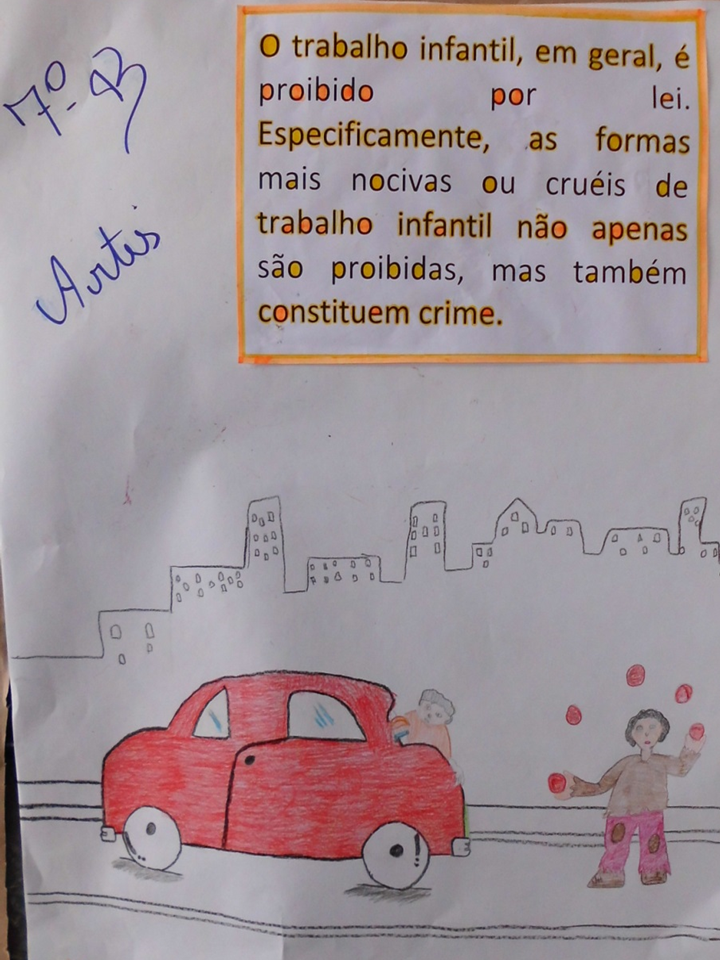 7º B
Artes
O trabalho infantil, em geral, é
proibido por lei.
Especificamente, as formas
mais nocivas ou cruéis de
trabalho infantil não apenas
são proibidas, mas também
constituem crime.